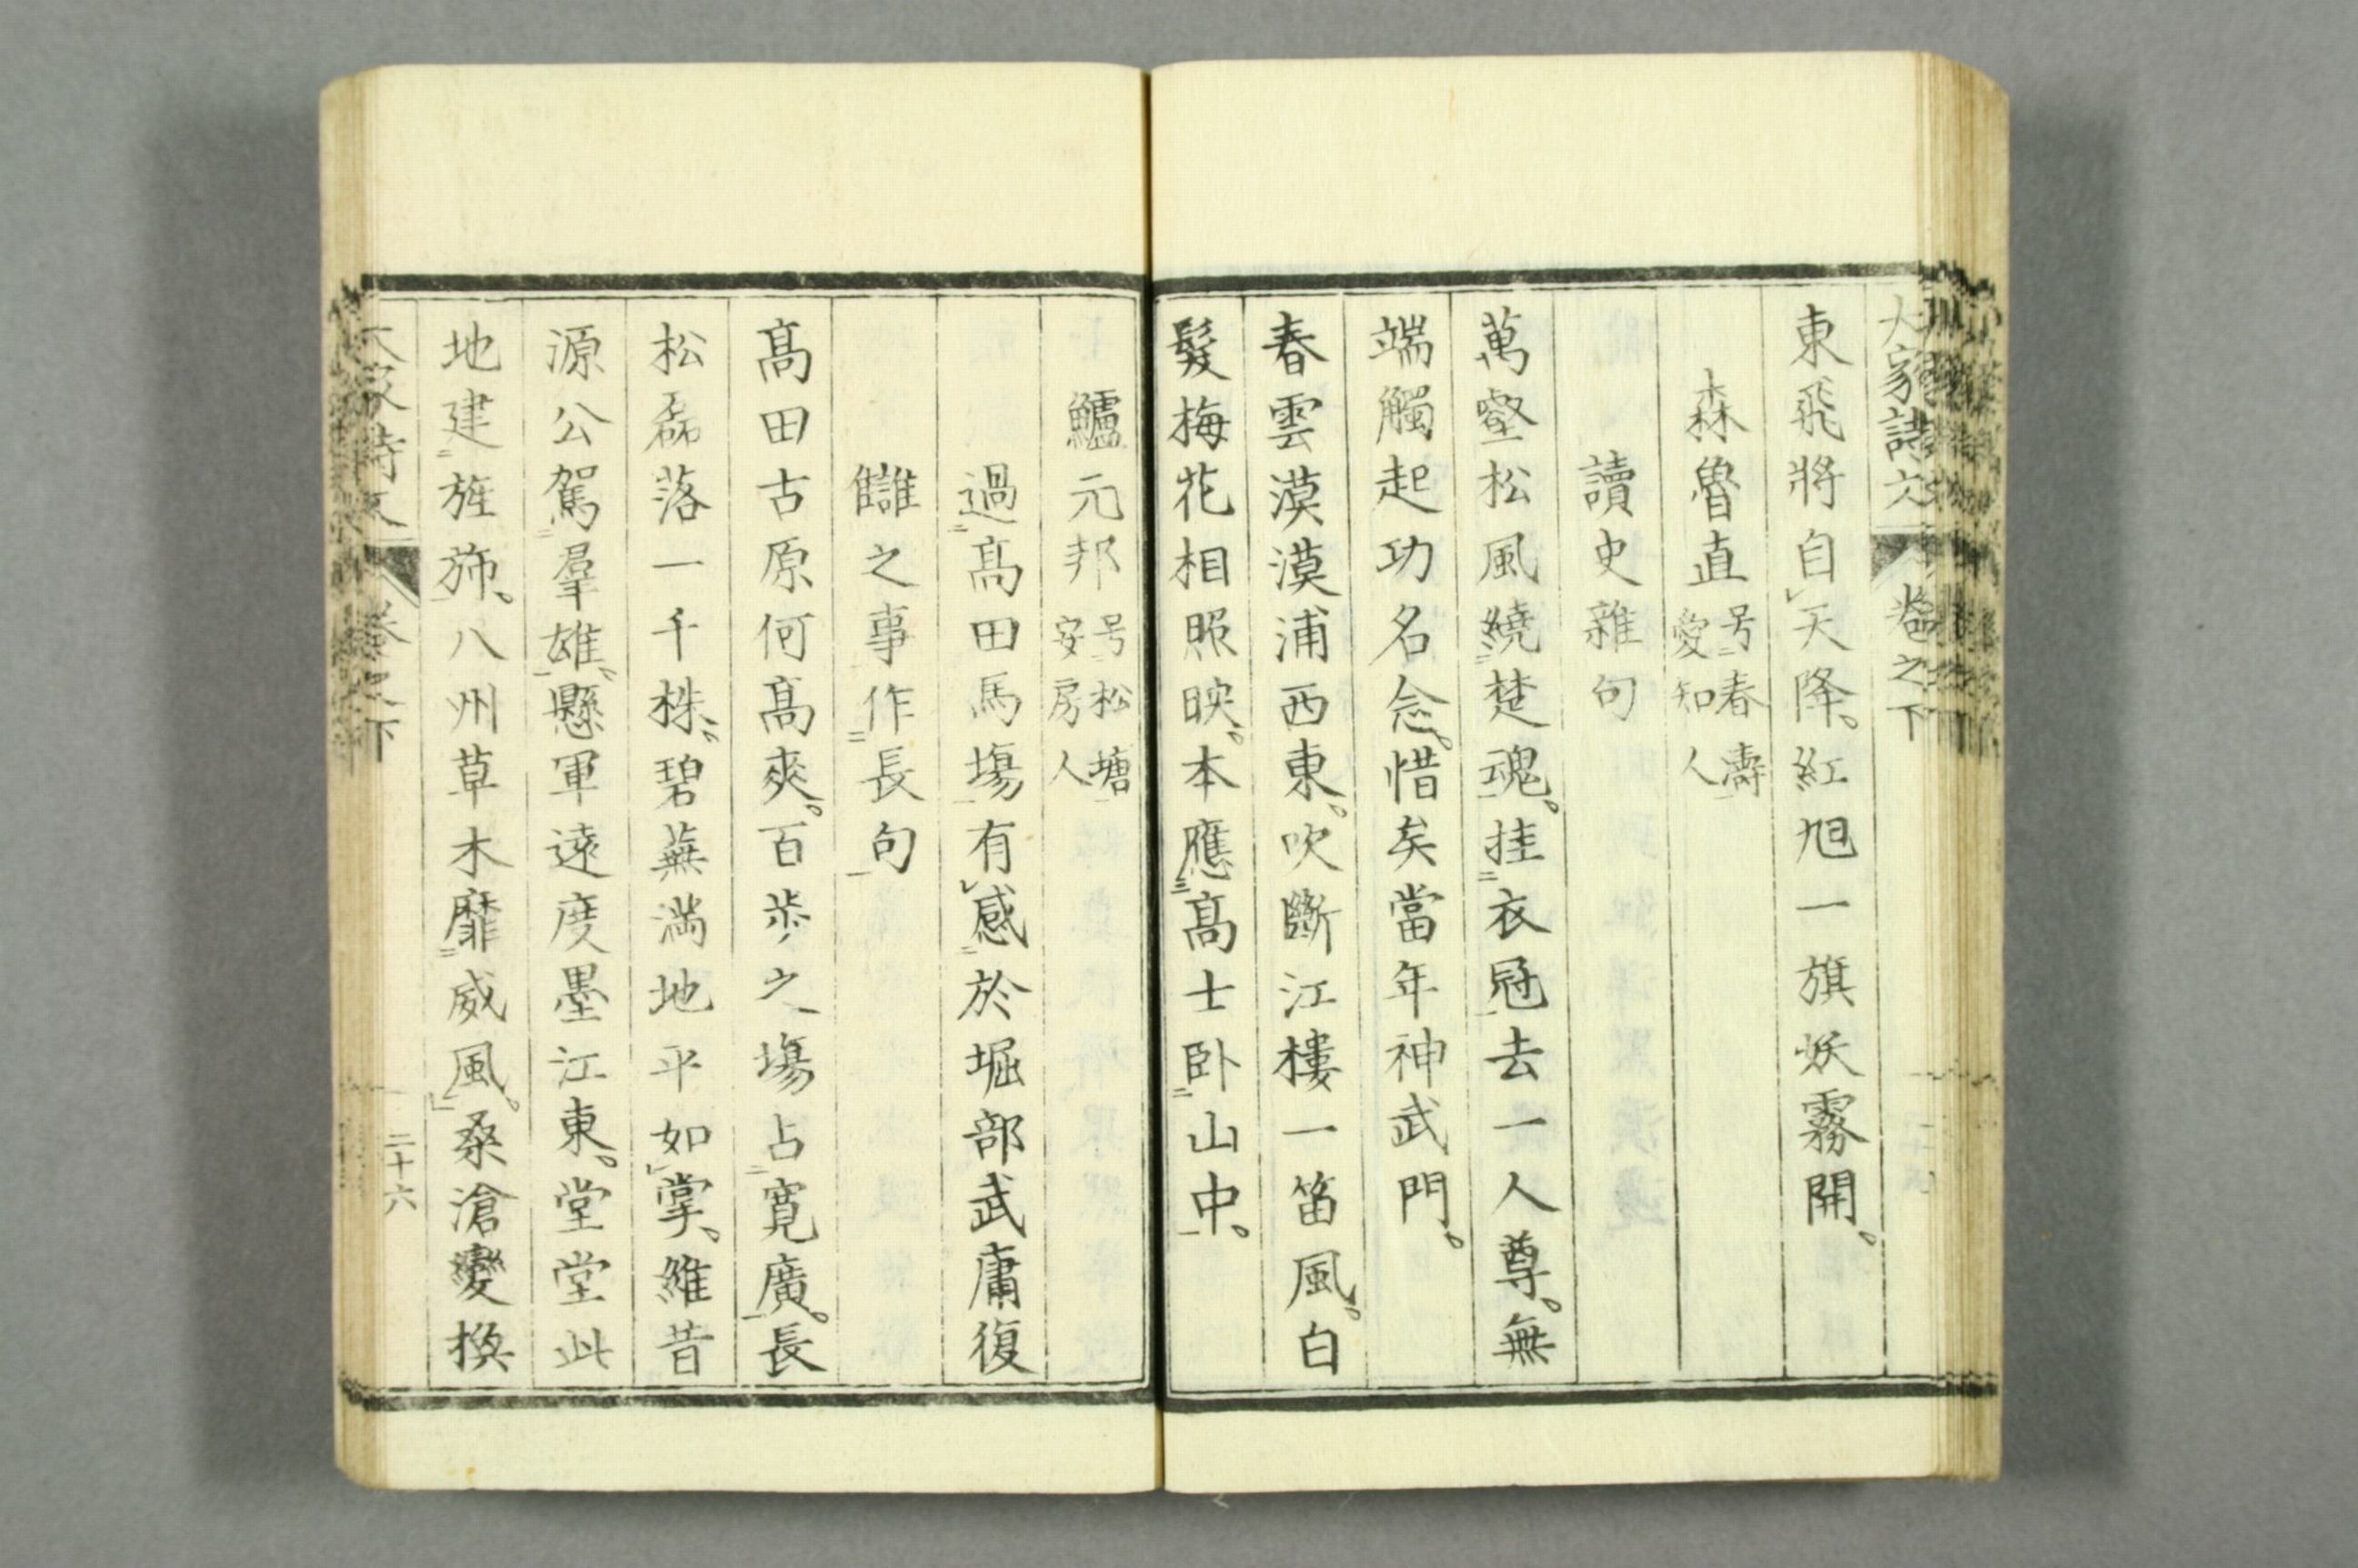 大家詩文 卷之下
東飛將自天降。紅旭一旗妖霧開。
森魯直 号春濤 愛知人
讀史雜句
萬壑松風繞楚魂。挂衣冠去一人尊。無
端觸起功名念。惜矣當年神武門。
春雲漠漠浦西東。吹斷江樓一笛風。白
髮梅花相照映。本應高士卧山中。
鱸元邦 号松塘 安房人
過髙田馬塲有感於堀部武庸復
讎之事作長句
髙田古原何髙爽。百步之塲占寬廣。長
松磊落一千株。碧蕪滿地平如掌。維昔
源公駕羣雄。懸軍遠度墨江東。堂堂此
地建旌斾。八州草木靡威風。桑滄變換
大家詩文 卷之下 二十六